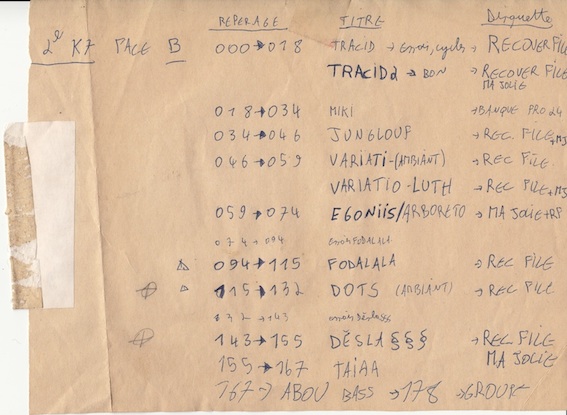 REPERAGE TITRE Disquette
2e K7 FACE B 000→018 TRACID → essais, cycles → RECOVER FILE
TRACID2 → BON → RECOVER FILE
MA JOLIE
018→034 MIKI →BANQUE PRO 24
034→046 JUNGLOUP → REC. FILE+MJ
046→059 VARIATI-(AMBIANT) → REC FILE
VARIATIO-LUTH → REC FILE+MJ
059→074 EGONIIS/ARBORETO → MA JOLIE+RF
074→094 essais FODALALA
094→115 FODALALA → REC FILE
115→132 DOTS (AMBIANT) → REC FILE
132→143 essais Desla§§§
143→155 DĔSLA§§§ → REC. FILE
MA JOLIE
155→167 TAIAA
167→ ABOU BASS →178 →GROUPE